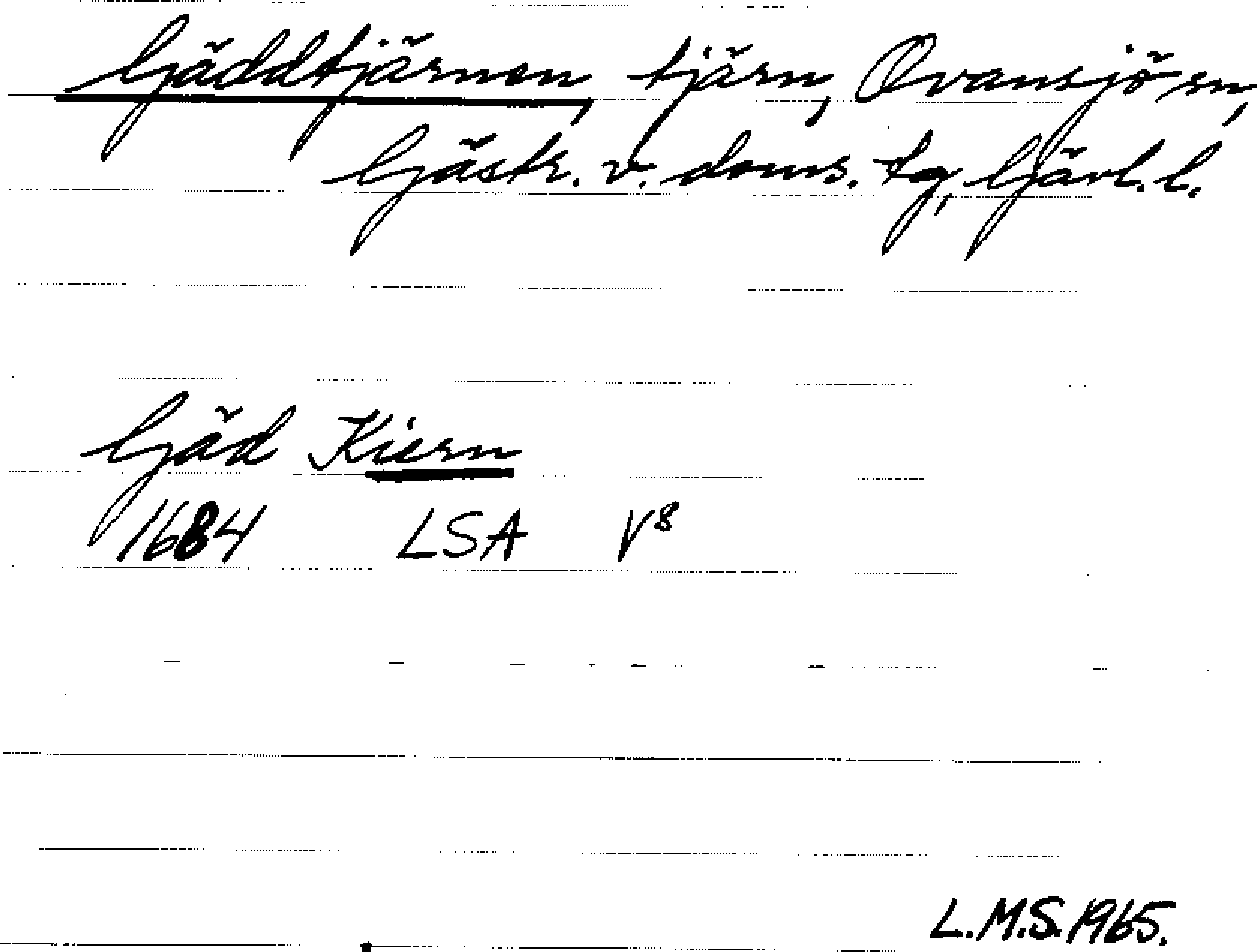 Gäddtjärnen, tjärn, Ovansjö sn,
Gästr. v. doms. tg, Gävl. l.
Gäd Kiern
1684 LSA V⁸
L.M.S. 1965.